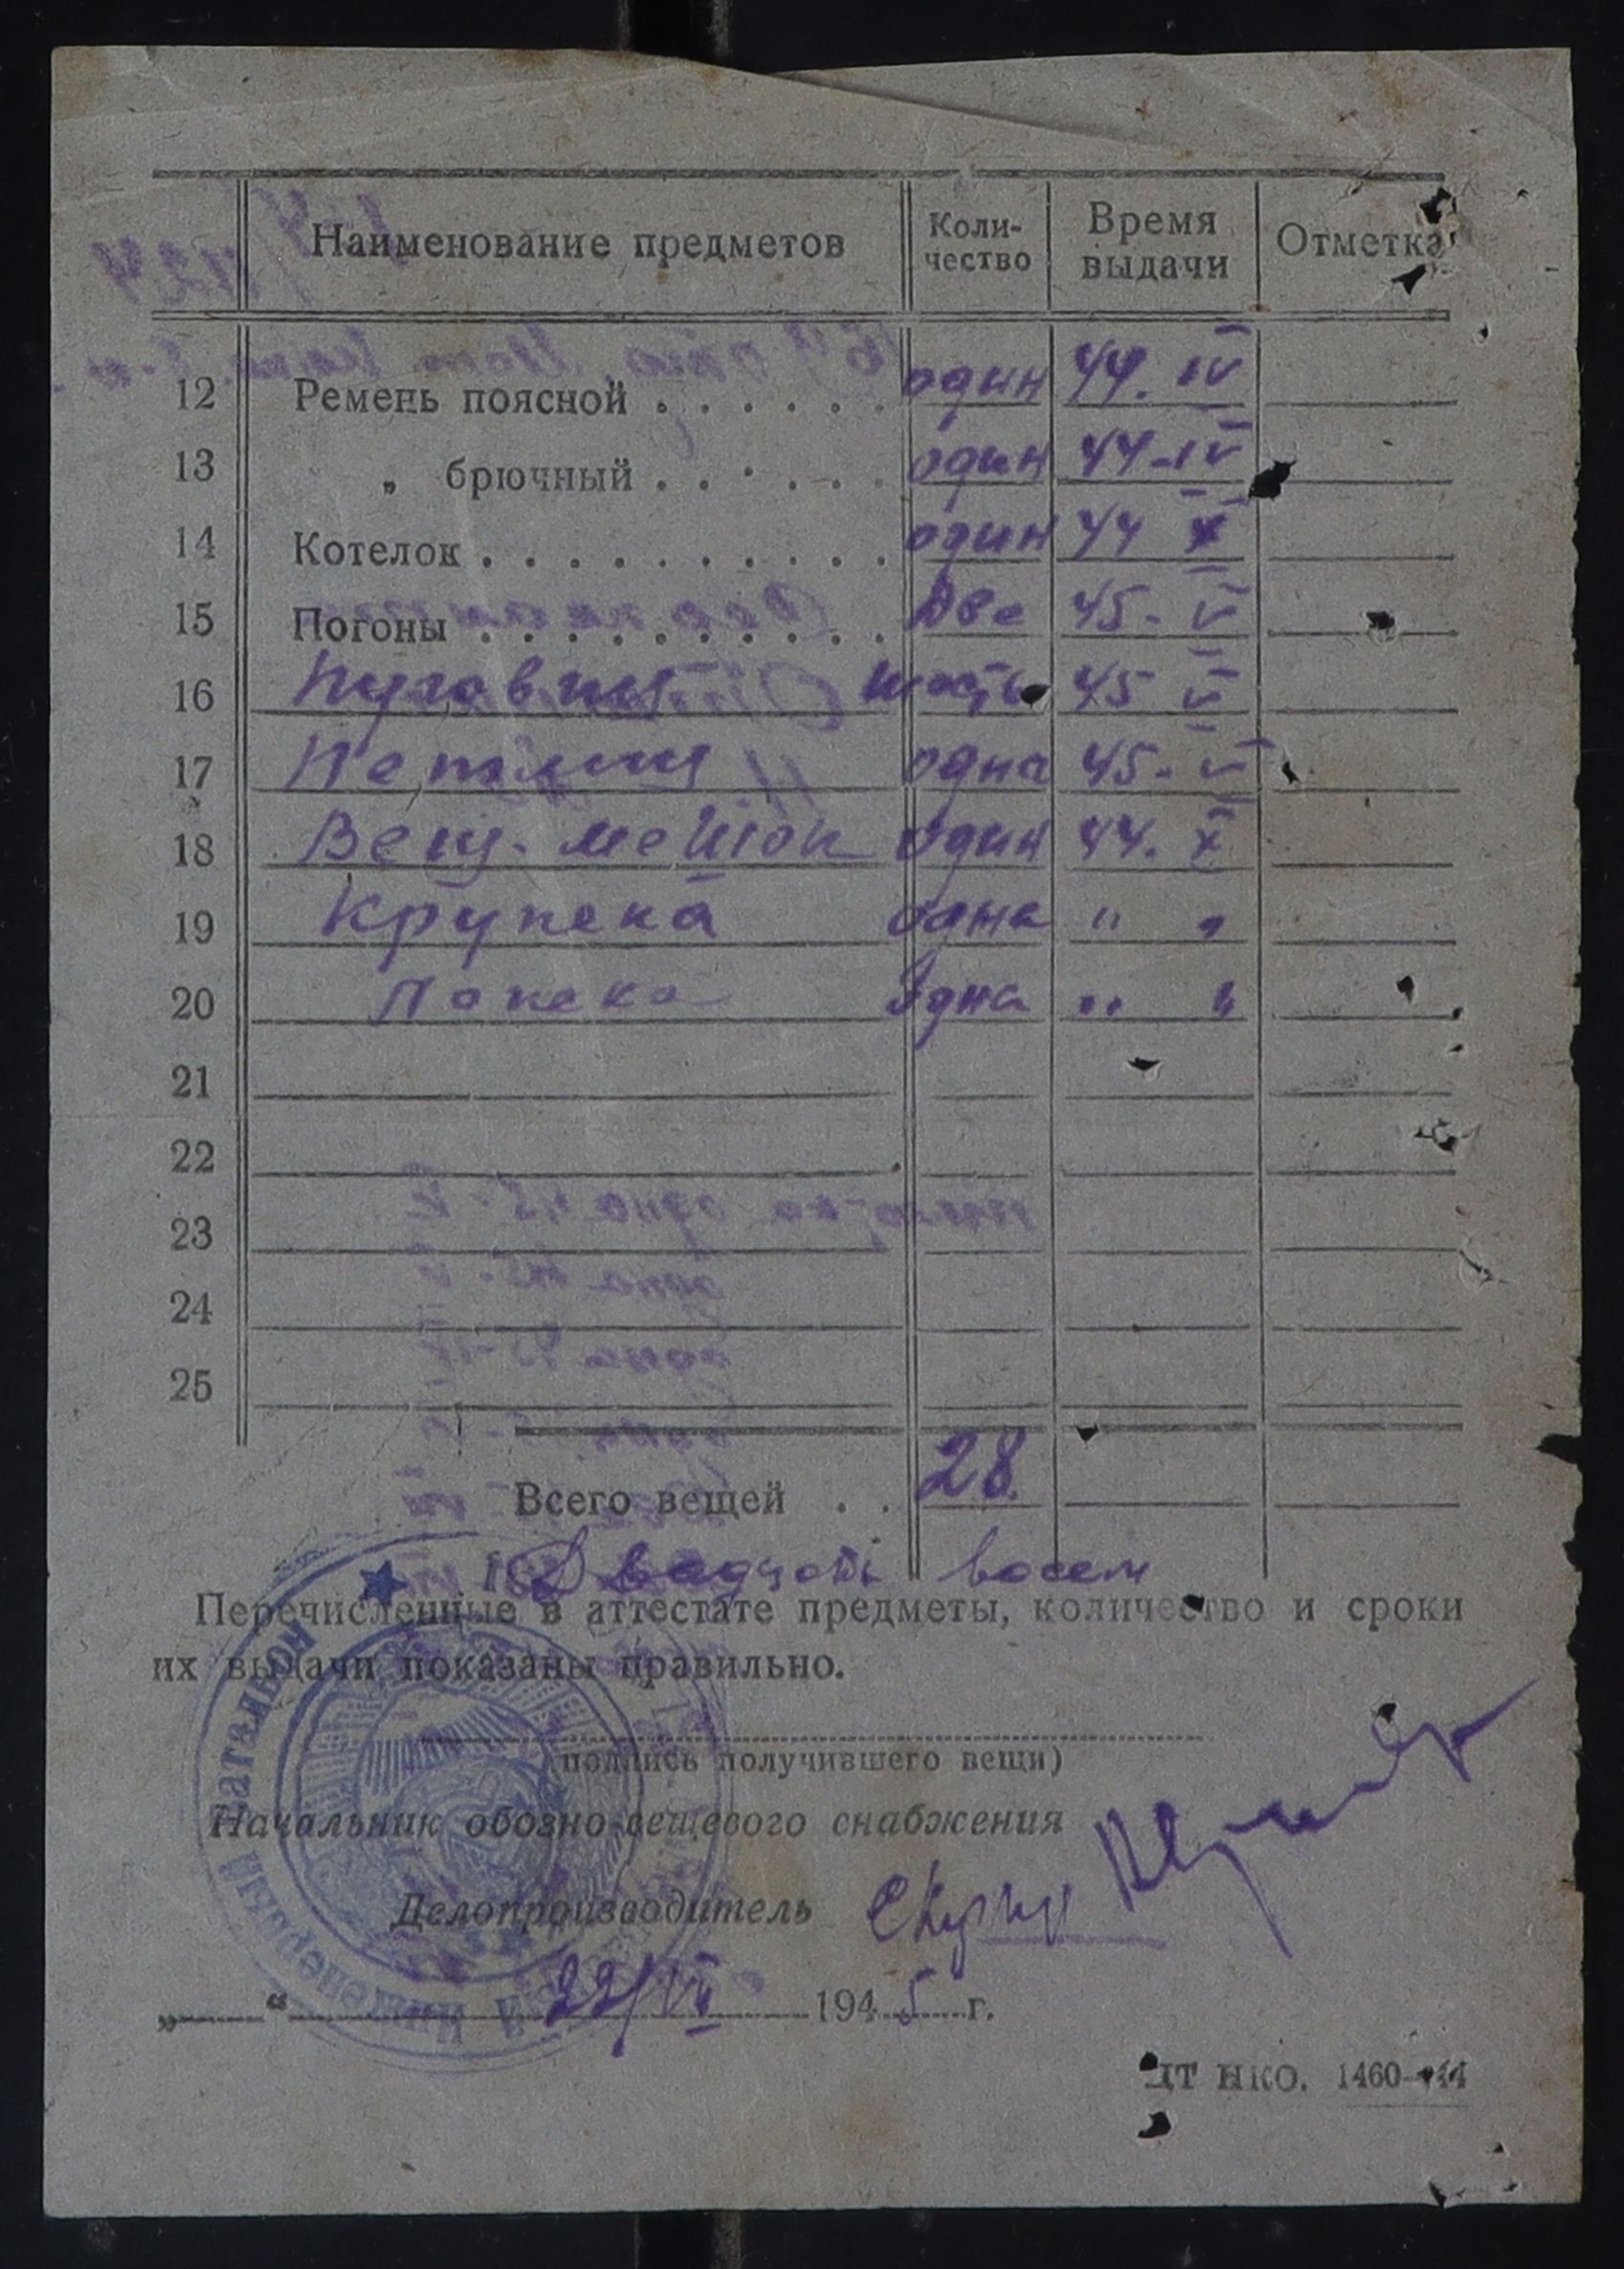 Наименование предметов Коли-чество Время выдачи Отметка
12 Ремень поясной . . . . . . один 44. IV
13 „ брючный . . . . . . один 44-IV
14 Котелок . . . . . . . . . . один 44 X
15 Погоны . . . . . . . . . . Две 45- V
16 Пуговиц шесть 45 V
17 Петлиц одна 45- V
18 Вещ. мешок один 44. X
19 Крупека одна " "
20 Попека Одна " "
21
22
23
24
25
Всего вещей . . 28.
Двадцать восем
Перечисленные в аттестате предметы, количество и сроки
их выдачи показаны правильно.
(подпись получившего вещи)
Начальник обозно-вещевого снабжения
Делопроизводитель
„ “ 22/VI 1945 г.
ЦТ НКО. 1460-44
Инженерный батальон